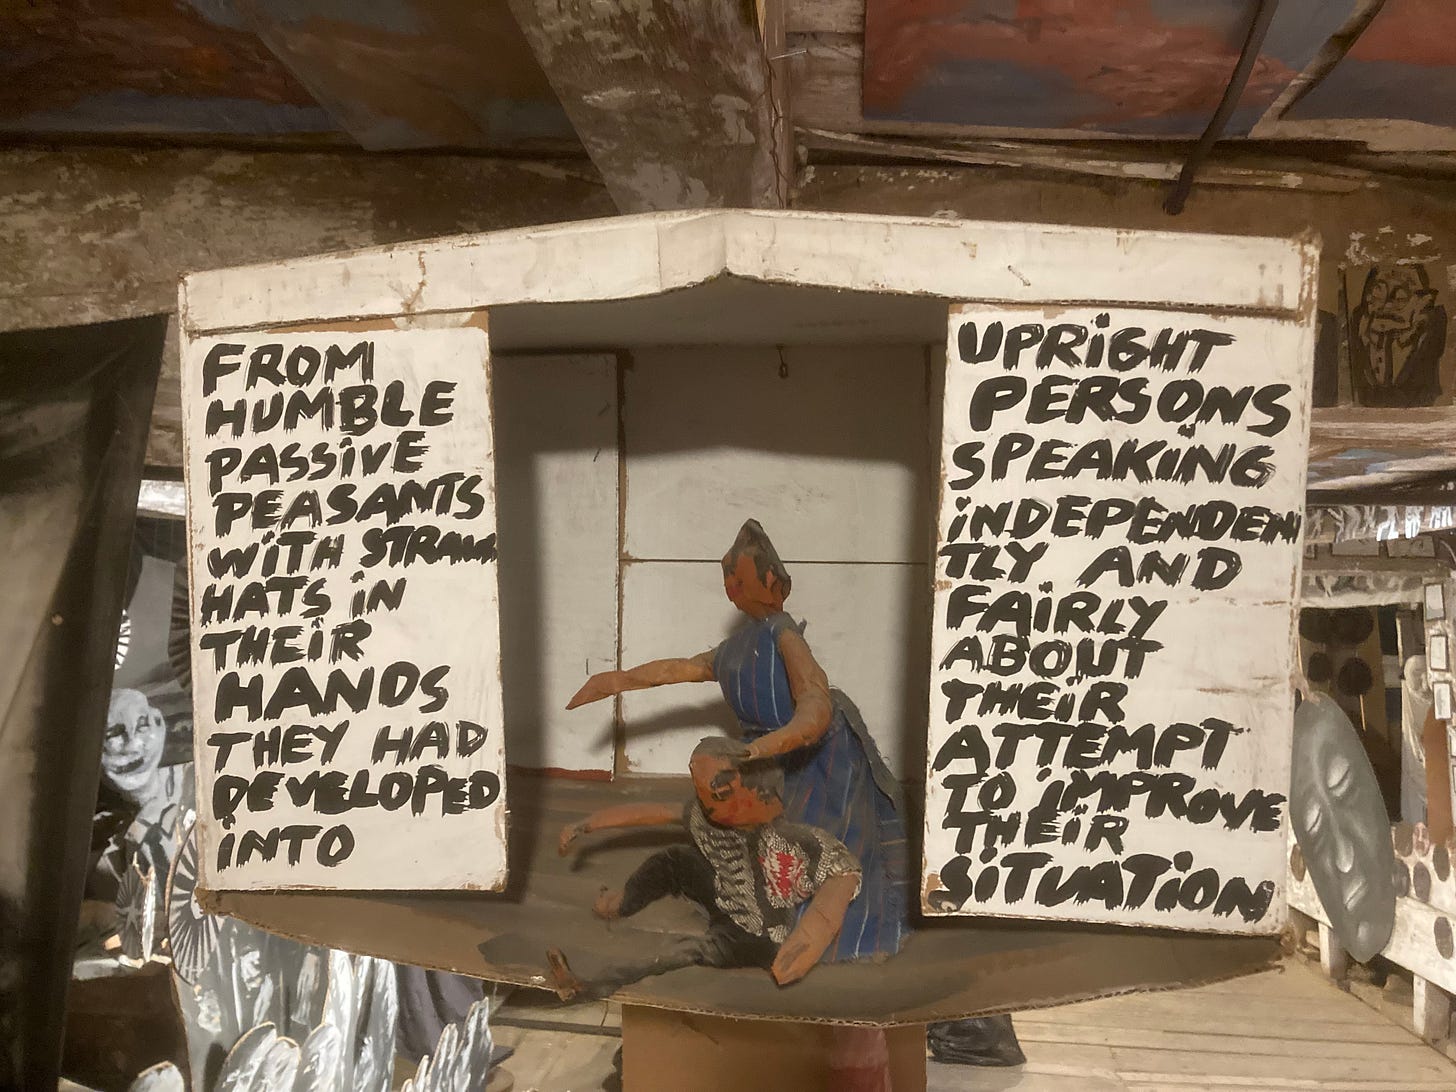 FROM
HUMBLE
PASSiVE
PEASANTS
WiTH STRAW
HATS iN
THEiR
HANDS
THEY HAD
DEVELOPED
iNTO
UPRiGHT
PERSONS
SPEAKiNG
iNDEPENDEN
TLY AND
FAiRLY
ABOUT
THEiR
ATTEMPT
TO iMPROVE
THEiR
SiTUATiON